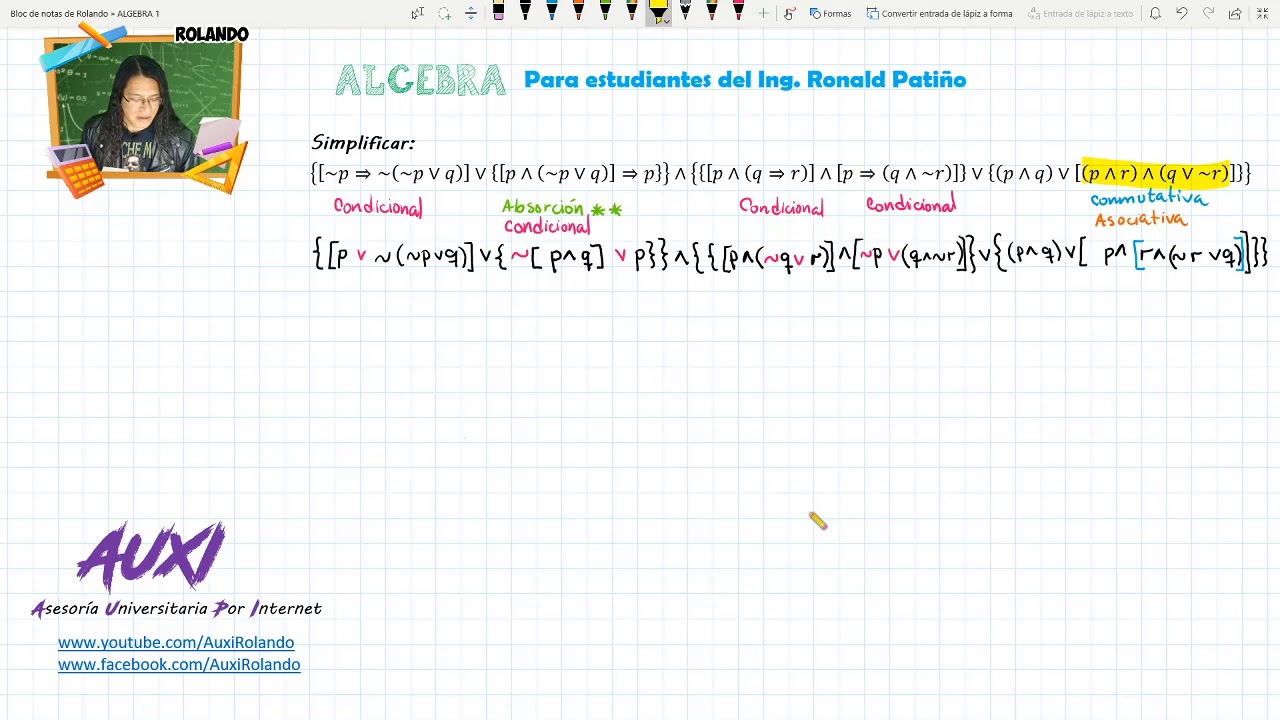 Bloc de notas de Rolando » ALGEBRA 1
Formas
Convertir entrada de lápiz a forma
Entrada de lápiz a texto
ROLANDO
ALGEBRA Para estudiantes del Ing. Ronald Patiño
Simplificar:
{[~p ⇒ ~(~p ∨ q)] ∨ {[p ∧ (~p ∨ q)] ⇒ p}} ∧ {{[p ∧ (q ⇒ r)] ∧ [p ⇒ (q ∧ ~r)]} ∨ {(p ∧ q) ∨ [(p ∧ r) ∧ (q ∨ ~r)]}}
Condicional
Absorción **
Condicional
Condicional
Condicional
Conmutativa
Asociativa
{[p ∨ ~(~p∨q)] ∨ { ~[ p∧q] ∨ p}} ∧ { {[p∧(~q∨r)] ∧ [~p∨(q∧~r)]} ∨ {(p∧q) ∨ [ p∧ [r∧(~r∨q)]]}}
AUXI
Asesoría Universitaria Por Internet
www.youtube.com/AuxiRolando
www.facebook.com/AuxiRolando